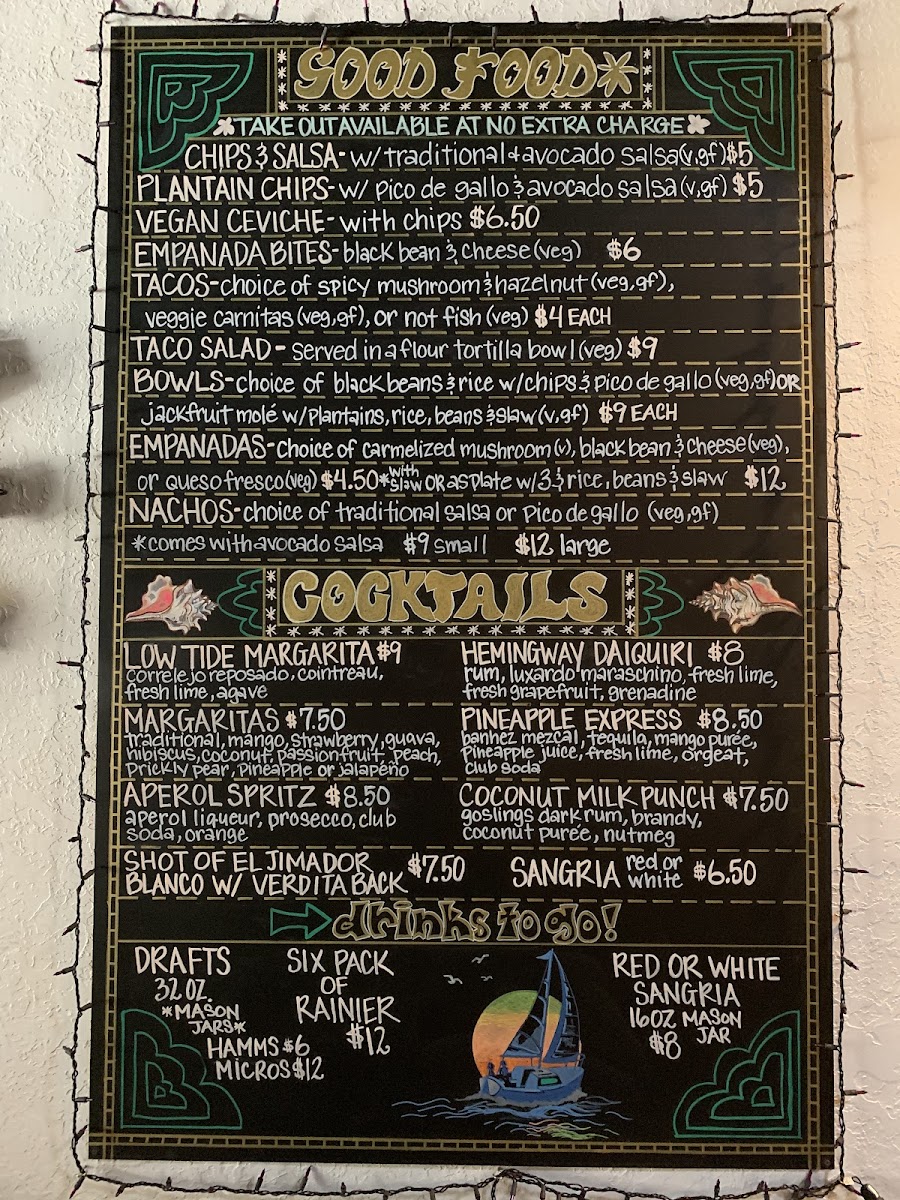 GOOD FOOD*
*TAKE OUT AVAILABLE AT NO EXTRA CHARGE*
CHIPS & SALSA- w/traditional & avocado salsa (v,gf) $5
PLANTAIN CHIPS- w/ pico de gallo & avocado salsa (v,gf) $5
VEGAN CEVICHE- with chips $6.50
EMPANADA BITES- black bean & cheese (veg) $6
TACOS- choice of spicy mushroom & hazelnut (veg,gf),
veggie carnitas (veg,gf), or not fish (veg) $4 EACH
TACO SALAD - served in a flour tortilla bowl (veg) $9
BOWLS- choice of black beans & rice w/chips & pico de gallo (veg,gf) OR
jackfruit molé w/plantains, rice, beans & slaw (v,gf) $9 EACH
EMPANADAS- choice of carmelized mushroom (v), black bean & cheese (veg),
or queso fresco (veg) $4.50 *with slaw OR as plate w/3 & rice, beans & slaw $12
NACHOS- choice of traditional salsa or pico de gallo (veg,gf)
*comes with avocado salsa $9 small $12 large
COCKTAILS
LOW TIDE MARGARITA $9
correlejo reposado, cointreau,
fresh lime, agave
HEMINGWAY DAIQUIRI $8
rum, luxardo maraschino, fresh lime,
fresh grapefruit, grenadine
MARGARITAS $7.50
traditional, mango, strawberry, guava,
hibiscus, coconut, passionfruit, peach,
prickly pear, pineapple or jalapeño
PINEAPPLE EXPRESS $8.50
banhez mezcal, tequila, mango purée,
pineapple juice, fresh lime, orgeat,
club soda
APEROL SPRITZ $8.50
aperol liqueur, prosecco, club
soda, orange
COCONUT MILK PUNCH $7.50
goslings dark rum, brandy,
coconut purée, nutmeg
SHOT OF EL JIMADOR
BLANCO W/ VERDITA BACK $7.50
SANGRIA red or white $6.50
drinks to go!
DRAFTS
32 OZ.
*MASON
JARS*
HAMMS $6
MICROS $12
SIX PACK
OF
RAINIER
$12
RED OR WHITE
SANGRIA
16OZ MASON
JAR
$8